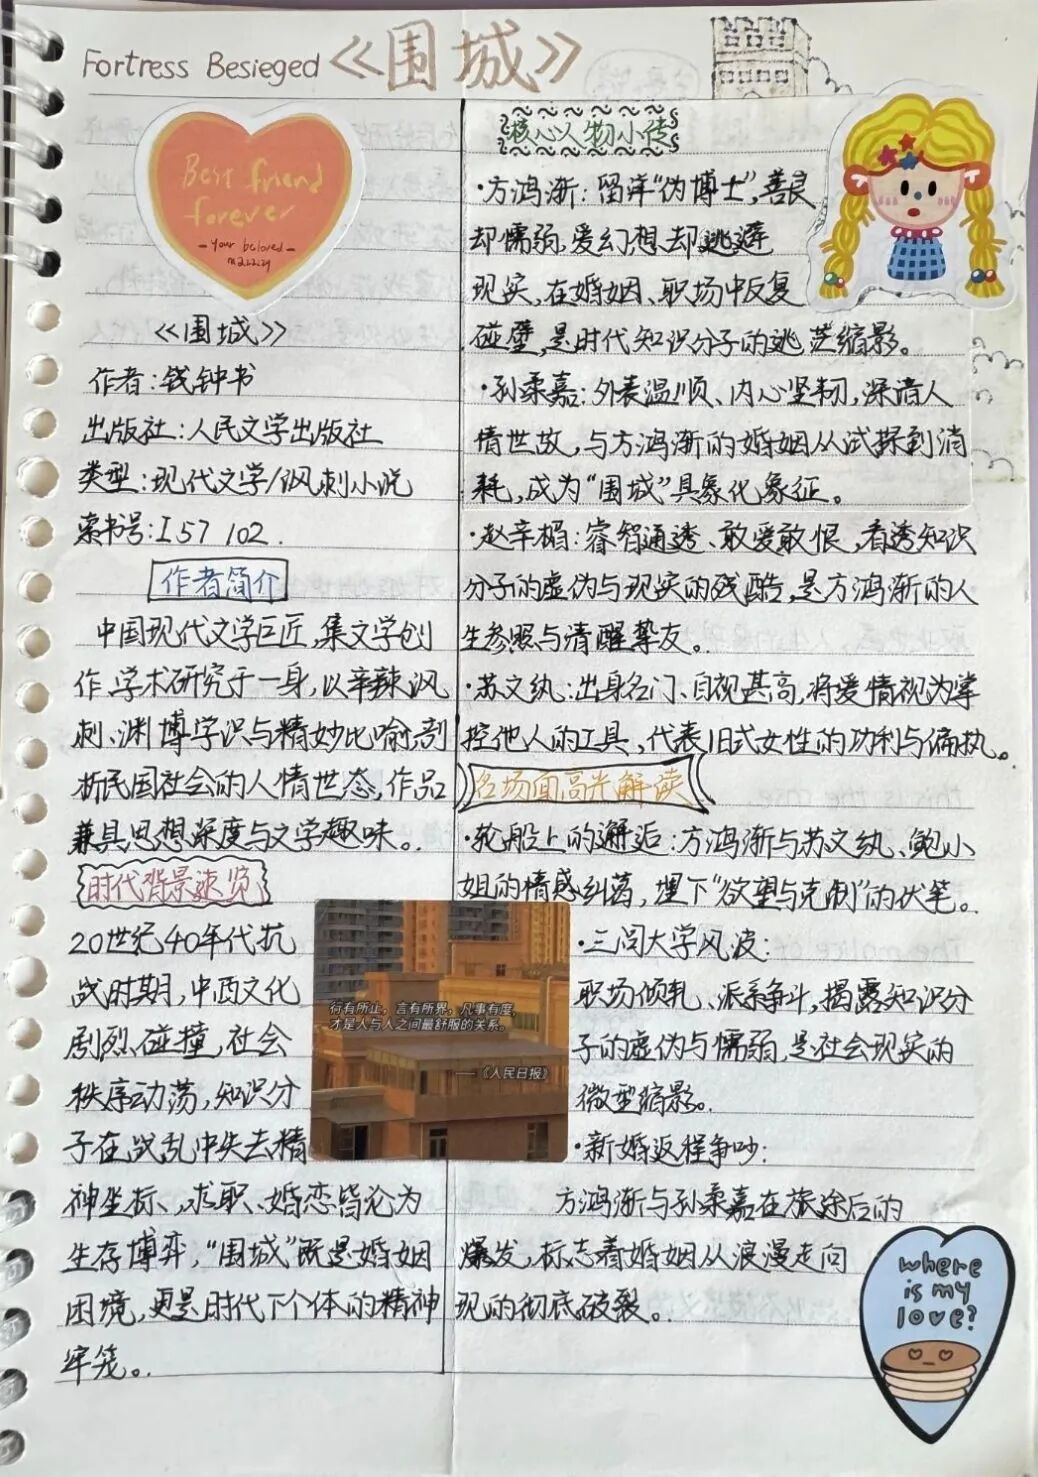 Fortress Besieged 《围城》
Best friend
forever
- your beloved -
《围城》
作者:钱钟书
出版社:人民文学出版社
类型:现代文学/讽刺小说
索书号:I57 102.
作者简介
中国现代文学巨匠,集文学创
作、学术研究于一身,以辛辣讽
刺、渊博学识与精妙比喻剖
析民国社会的人情世态,作品
兼具思想深度与文学趣味。
时代背景速览
20世纪40年代抗
战时期,中西文化
剧烈碰撞,社会
秩序动荡,知识分
子在战乱中失去精
神坐标、求职、婚恋皆沦为
生存博弈,“围城”既是婚姻
困境,更是时代下个体的精神
牢笼。
核心人物小传
·方鸿渐:留洋“伪博士”,善良
却懦弱,爱幻想却逃避
现实,在婚姻、职场中反复
碰壁,是时代知识分子的迷茫缩影。
·孙柔嘉:外表温顺、内心坚韧,深谙人
情世故,与方鸿渐的婚姻从试探到消
耗,成为“围城”具象化象征。
·赵辛楣:睿智通透、敢爱敢恨,看透知识
分子的虚伪与现实的残酷,是方鸿渐的人
生参照与清醒挚友。
·苏文纨:出身名门、自视甚高,将爱情视为掌
控他人的工具、代表旧式女性的功利与偏执。
名场面高光解读
·轮船上的邂逅:方鸿渐与苏文纨、鲍小
姐的情感纠葛,埋下“欲望与克制”的伏笔。
·三闾大学风波:
职场倾轧、派系争斗,揭露知识分
子的虚伪与懦弱,是社会现实的
微型缩影。
·新婚返程争吵:
方鸿渐与孙柔嘉在旅途后的
爆发,标志着婚姻从浪漫走向
现的彻底破裂。
行有所止,言有所界,凡事有度,
才是人与人之间最舒服的关系。
——《人民日报》
where
is my
love?